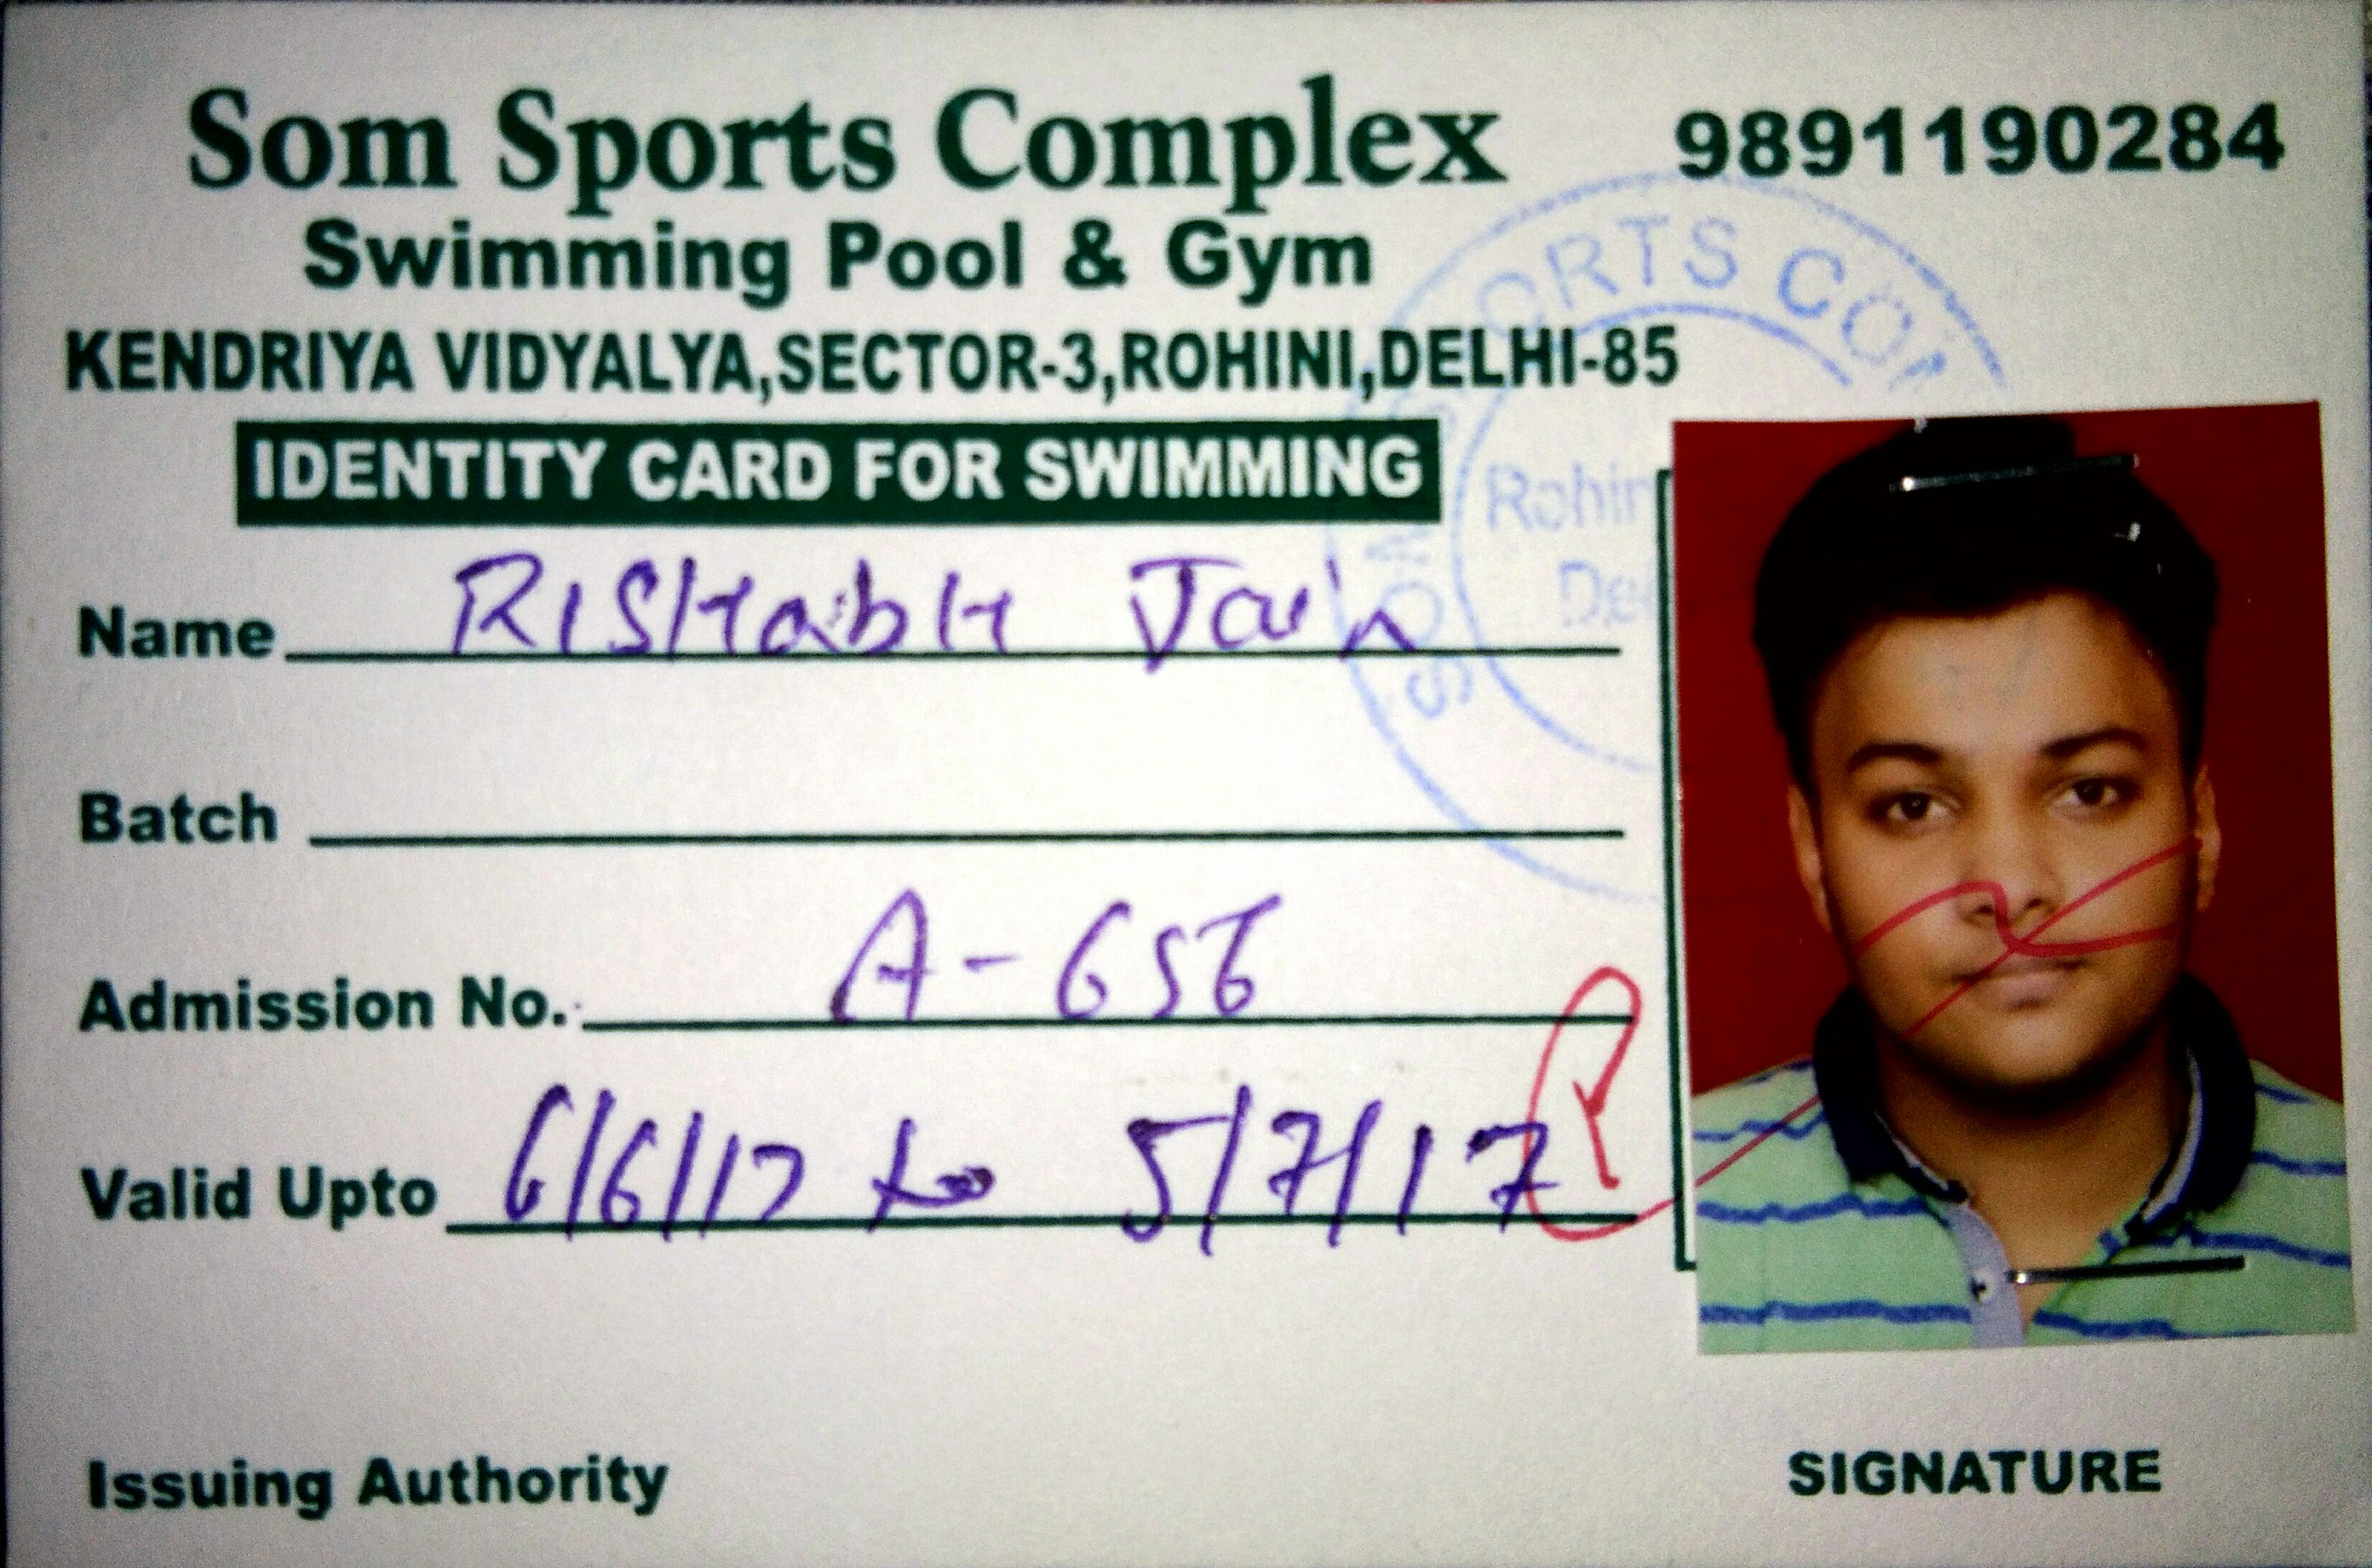 Som Sports Complex 9891190284
Swimming Pool & Gym
KENDRIYA VIDYALYA,SECTOR-3,ROHINI,DELHI-85
IDENTITY CARD FOR SWIMMING
Name RISHabH Jain
Batch
Admission No. A-656
Valid Upto 6/6/17 to 5/7/17
Issuing Authority
SIGNATURE
SOM SPORTS COM
Rohin
De